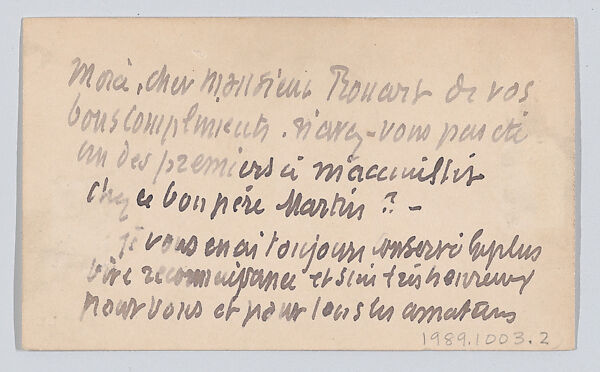 Merci, cher Monsieur Rouart de vos
bons compliments. n'avez-vous pas été
un des premiers à m'accueillir
chez ce bon père Martin ? –
Je vous en ai toujours conservé la plus
vive reconnaissance et suis très heureux
pour vous et pour tous les amateurs
1989.1003.2